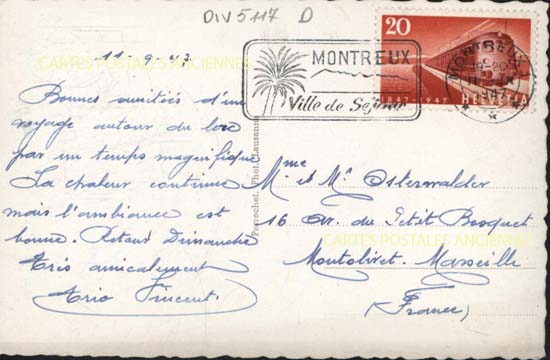 DIV 5117 D
11-9-47
CARTES POSTALES ANCIENNES
Bonnes amitiés d'un
voyage autour du lac
par un temps magnifique
La chaleur continue
mais l'ambiance est
bonne. Retour Dimanche
très amicalement
Trio Vincent.
Perrochet, Phot. Lausanne
MONTREUX
Ville de Séjour
20
1847 1947
HELVETIA
MONTREUX
19-20
11 IX
1947
Mme et Mr Osterwalder
16 Av. du Petit Bosquet
CARTES POSTALES ANCIENNES
Montolivet. Marseille
(France)